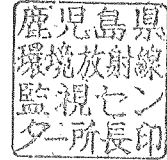 鹿児島県
環境放射線
監視セン
ター所長印